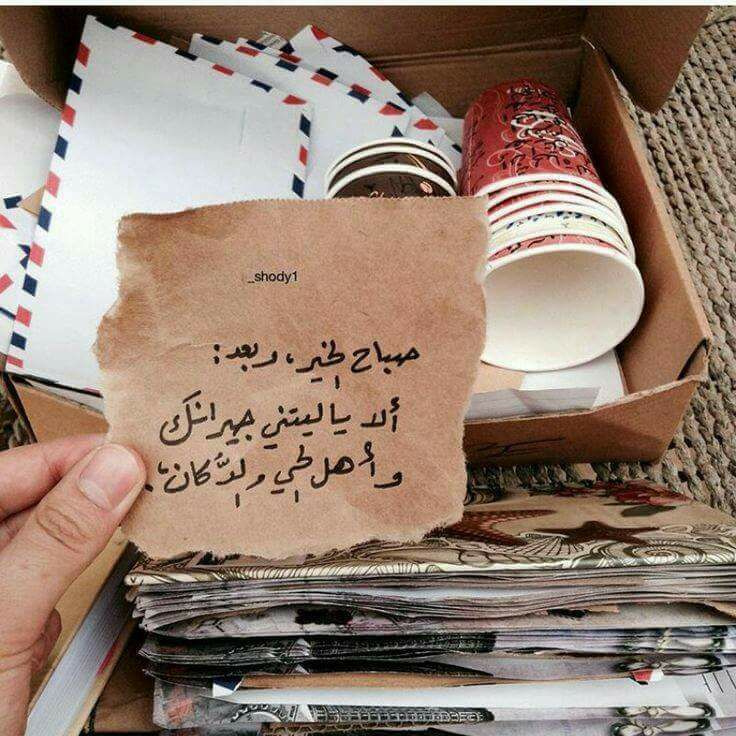 _shody1
صباح الخير، وبعد:
ألا ياليتني جيرانك
وأهل الحي والدّكان،.